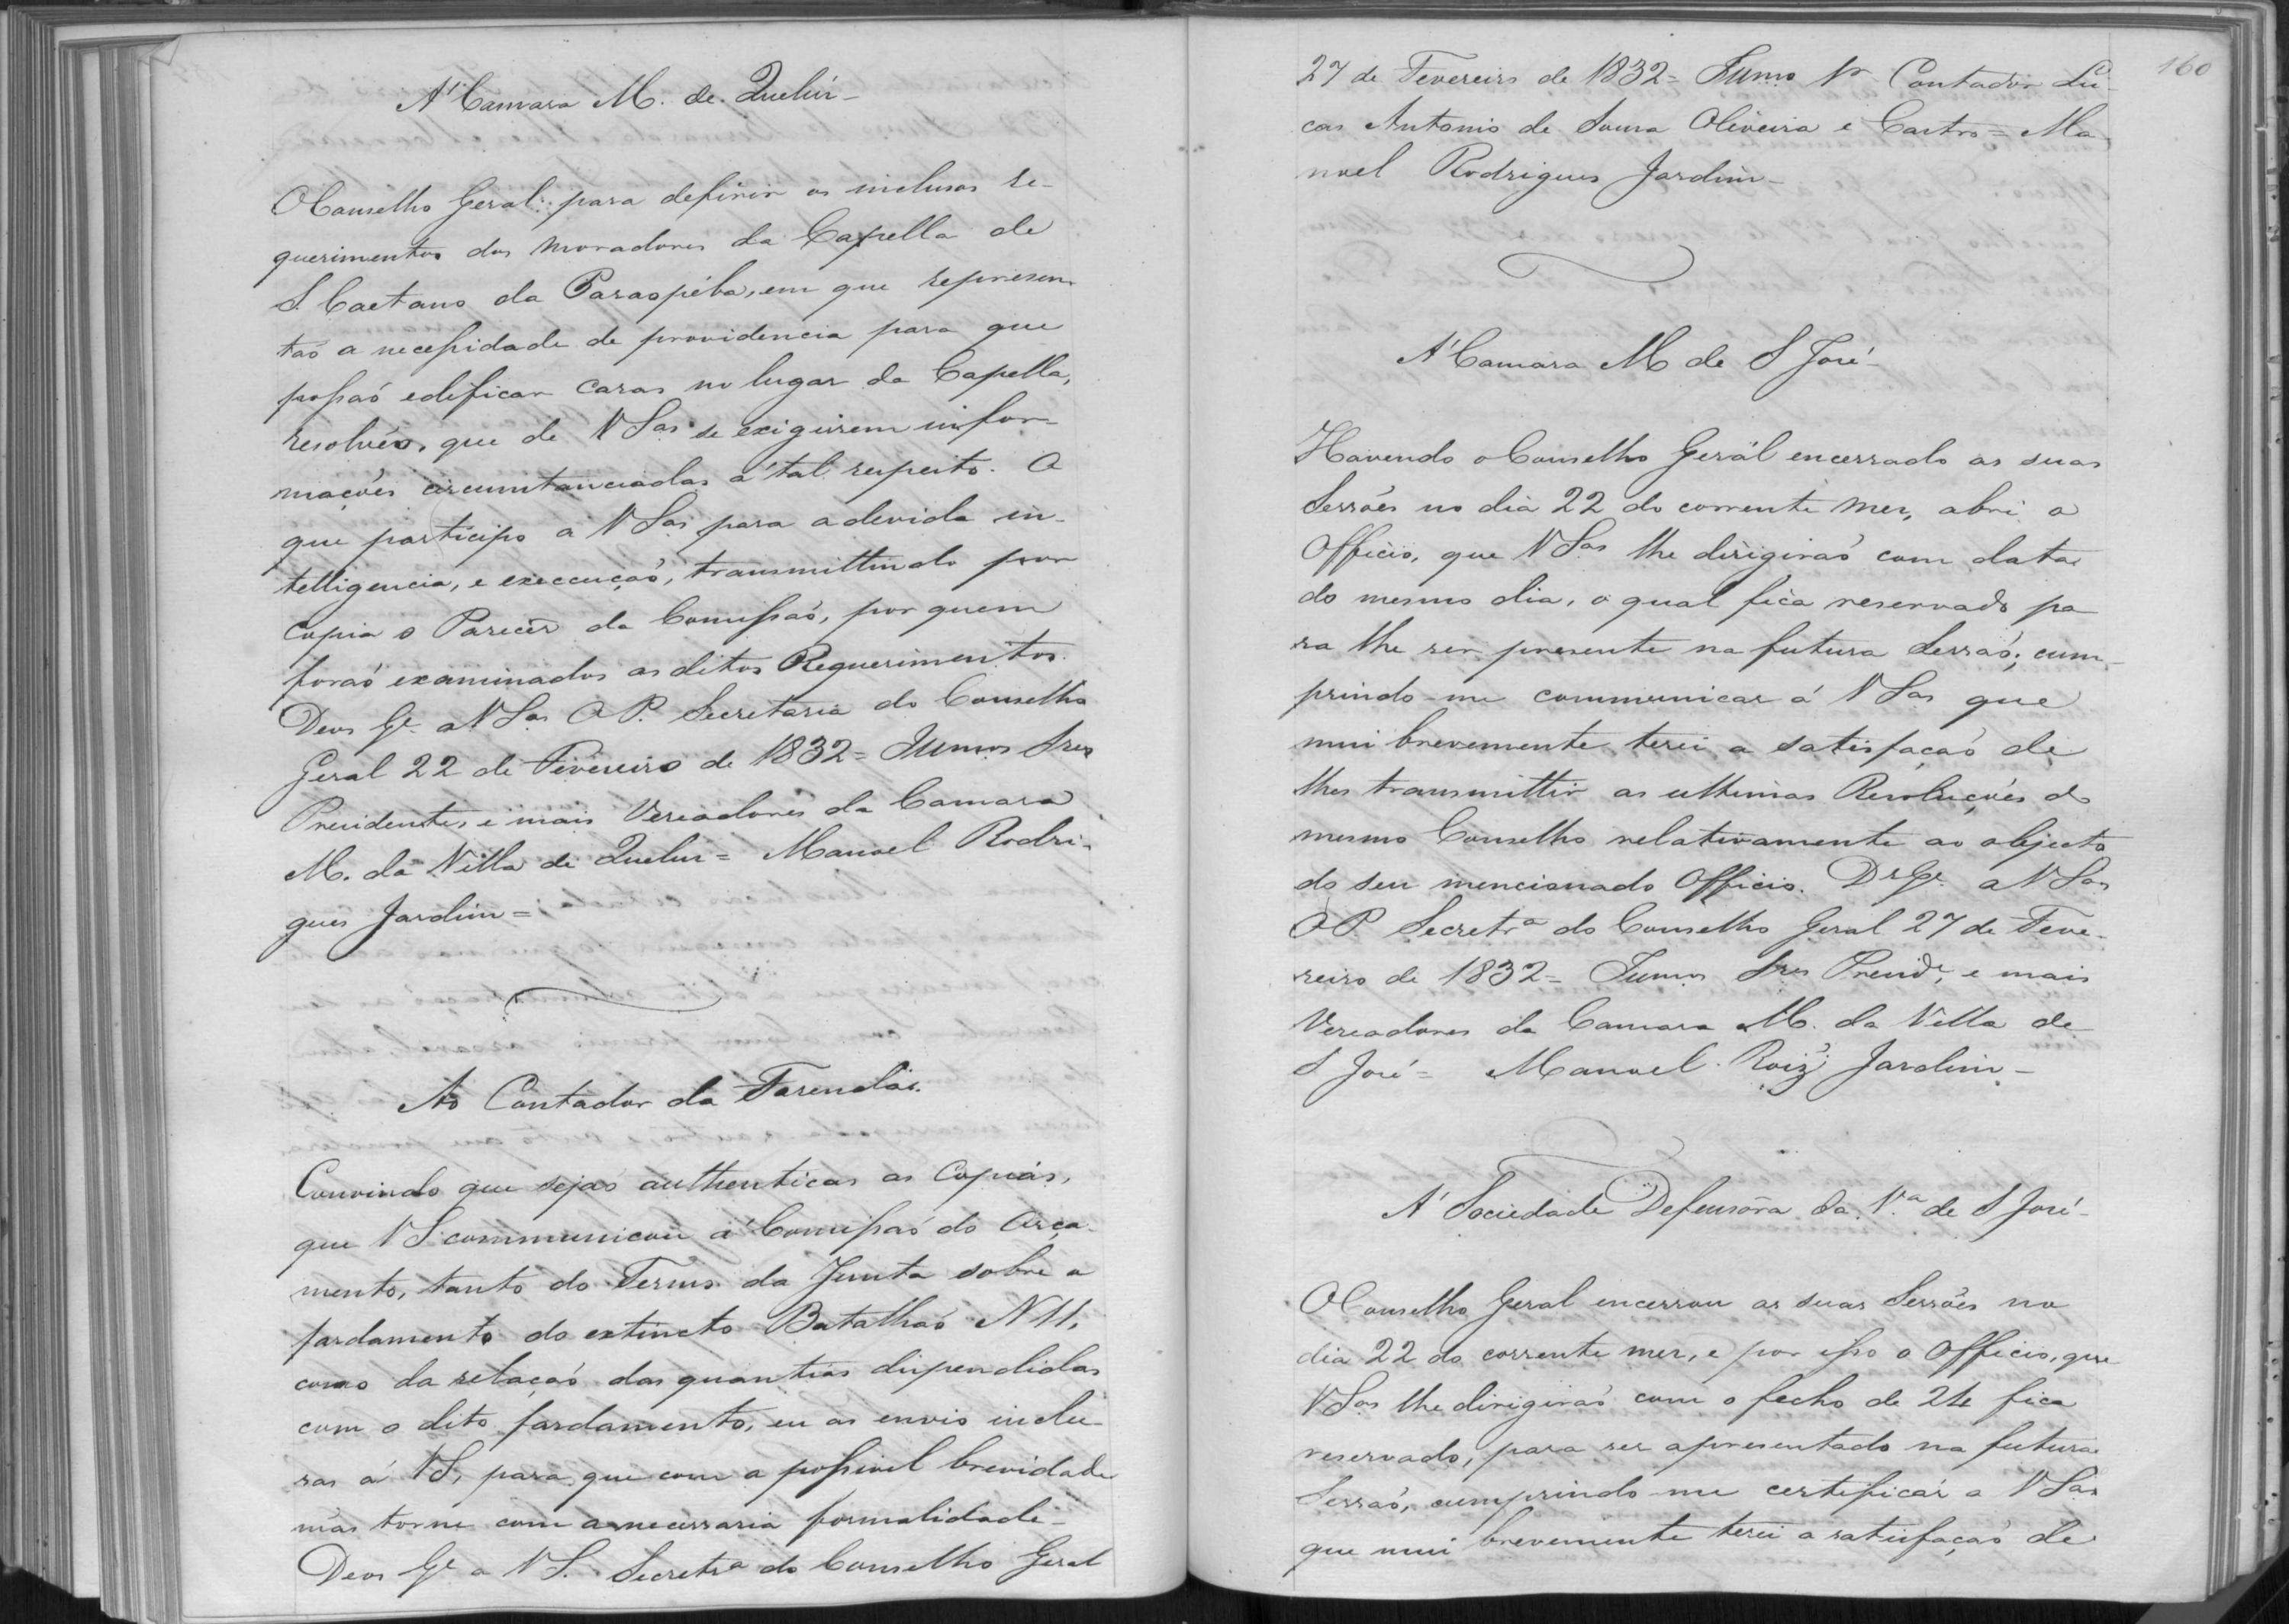 A' Camara M. de Queluz-
O Conselho Geral para definir os inclusos re-
querimentos dos moradores da Capella de
S. Caetano da Paraopéba, em que represen-
taõ a necessidade de providencia para que
possaõ edificar casas no lugar da Capella,
resolvêo, que de V Sas se exigissem infor-
maçoẽs circumstanciadas a' tal respeito. O
que participo a V Sas para a devida in-
telligencia, e execcuçaõ, transmittindo por
copia o Parecer da Comissaõ, por quem
foraõ examinados os ditos Requerimentos.
Deos Ge. a V Sas O P. Secretaria do Conselho
Geral 22 de Fevereiro de 1832= Illmos Sres
Presidente, e mais Vereadores da Camara
M. da Villa de Queluz= Manoel Rodri-
gues Jardim=
Ao Contador da Fazenda.
Convindo que sejaõ authenticas as Copias,
que V S. communicou á Comissaõ do Orça-
mento, tanto do Termo da Junta sobre o
fardamento do extincto Batalhaõ N 11,
como da relaçaõ das quantias dispendidas
com o dito fardamento, eu as envio inclu-
sas á V S, para que com a possivel brevidade
mas torne com a necessaria formalidade-
Deos Ge a V S. Secretra do Conselho Geral
160
27 de Fevereiro de 1832= Illmo Sr Contador Lu-
cas Antonio de Souza Oliveira e Castro= Ma-
noel Rodrigues Jardim-
A' Camara M de S José-
Havendo o Conselho Geral encerrado as suas
Sessoẽs no dia 22 do corrente mez, abri o
Officio, que V Sas lhe dirigiraõ com data
do mesmo dia, o qual fica reservado pa-
ra lhe ser presente na futura Sessaõ; cum-
prindo-me communicar á V Sas que
mui brevemente terei a satisfaçaõ de
lhes transmittir as ultimas Resoluçoẽs do
mesmo Conselho relativamente ao objecto
do seu mencionado Officio. Ds Ge. a V Sas
O P. Secretra do Conselho Geral 27 de Feve-
reiro de 1832= Illmos Sres Preside, e mais
Vereadores da Camara M. da Villa de
S José= Manoel Roiz Jardim-
A' Sociedade Defensora da Va de S José-
O Conselho Geral encerrou as suas Sessoẽs no
dia 22 do corrente mez, e por isso o Officio, que
V Sas lhe dirigiraõ com o fecho de 24 fica
reservado, para ser apresentado na futura
Sessaõ, cumprindo-me certificar a V Sas
que mui brevemente terei a satisfaçaõ de